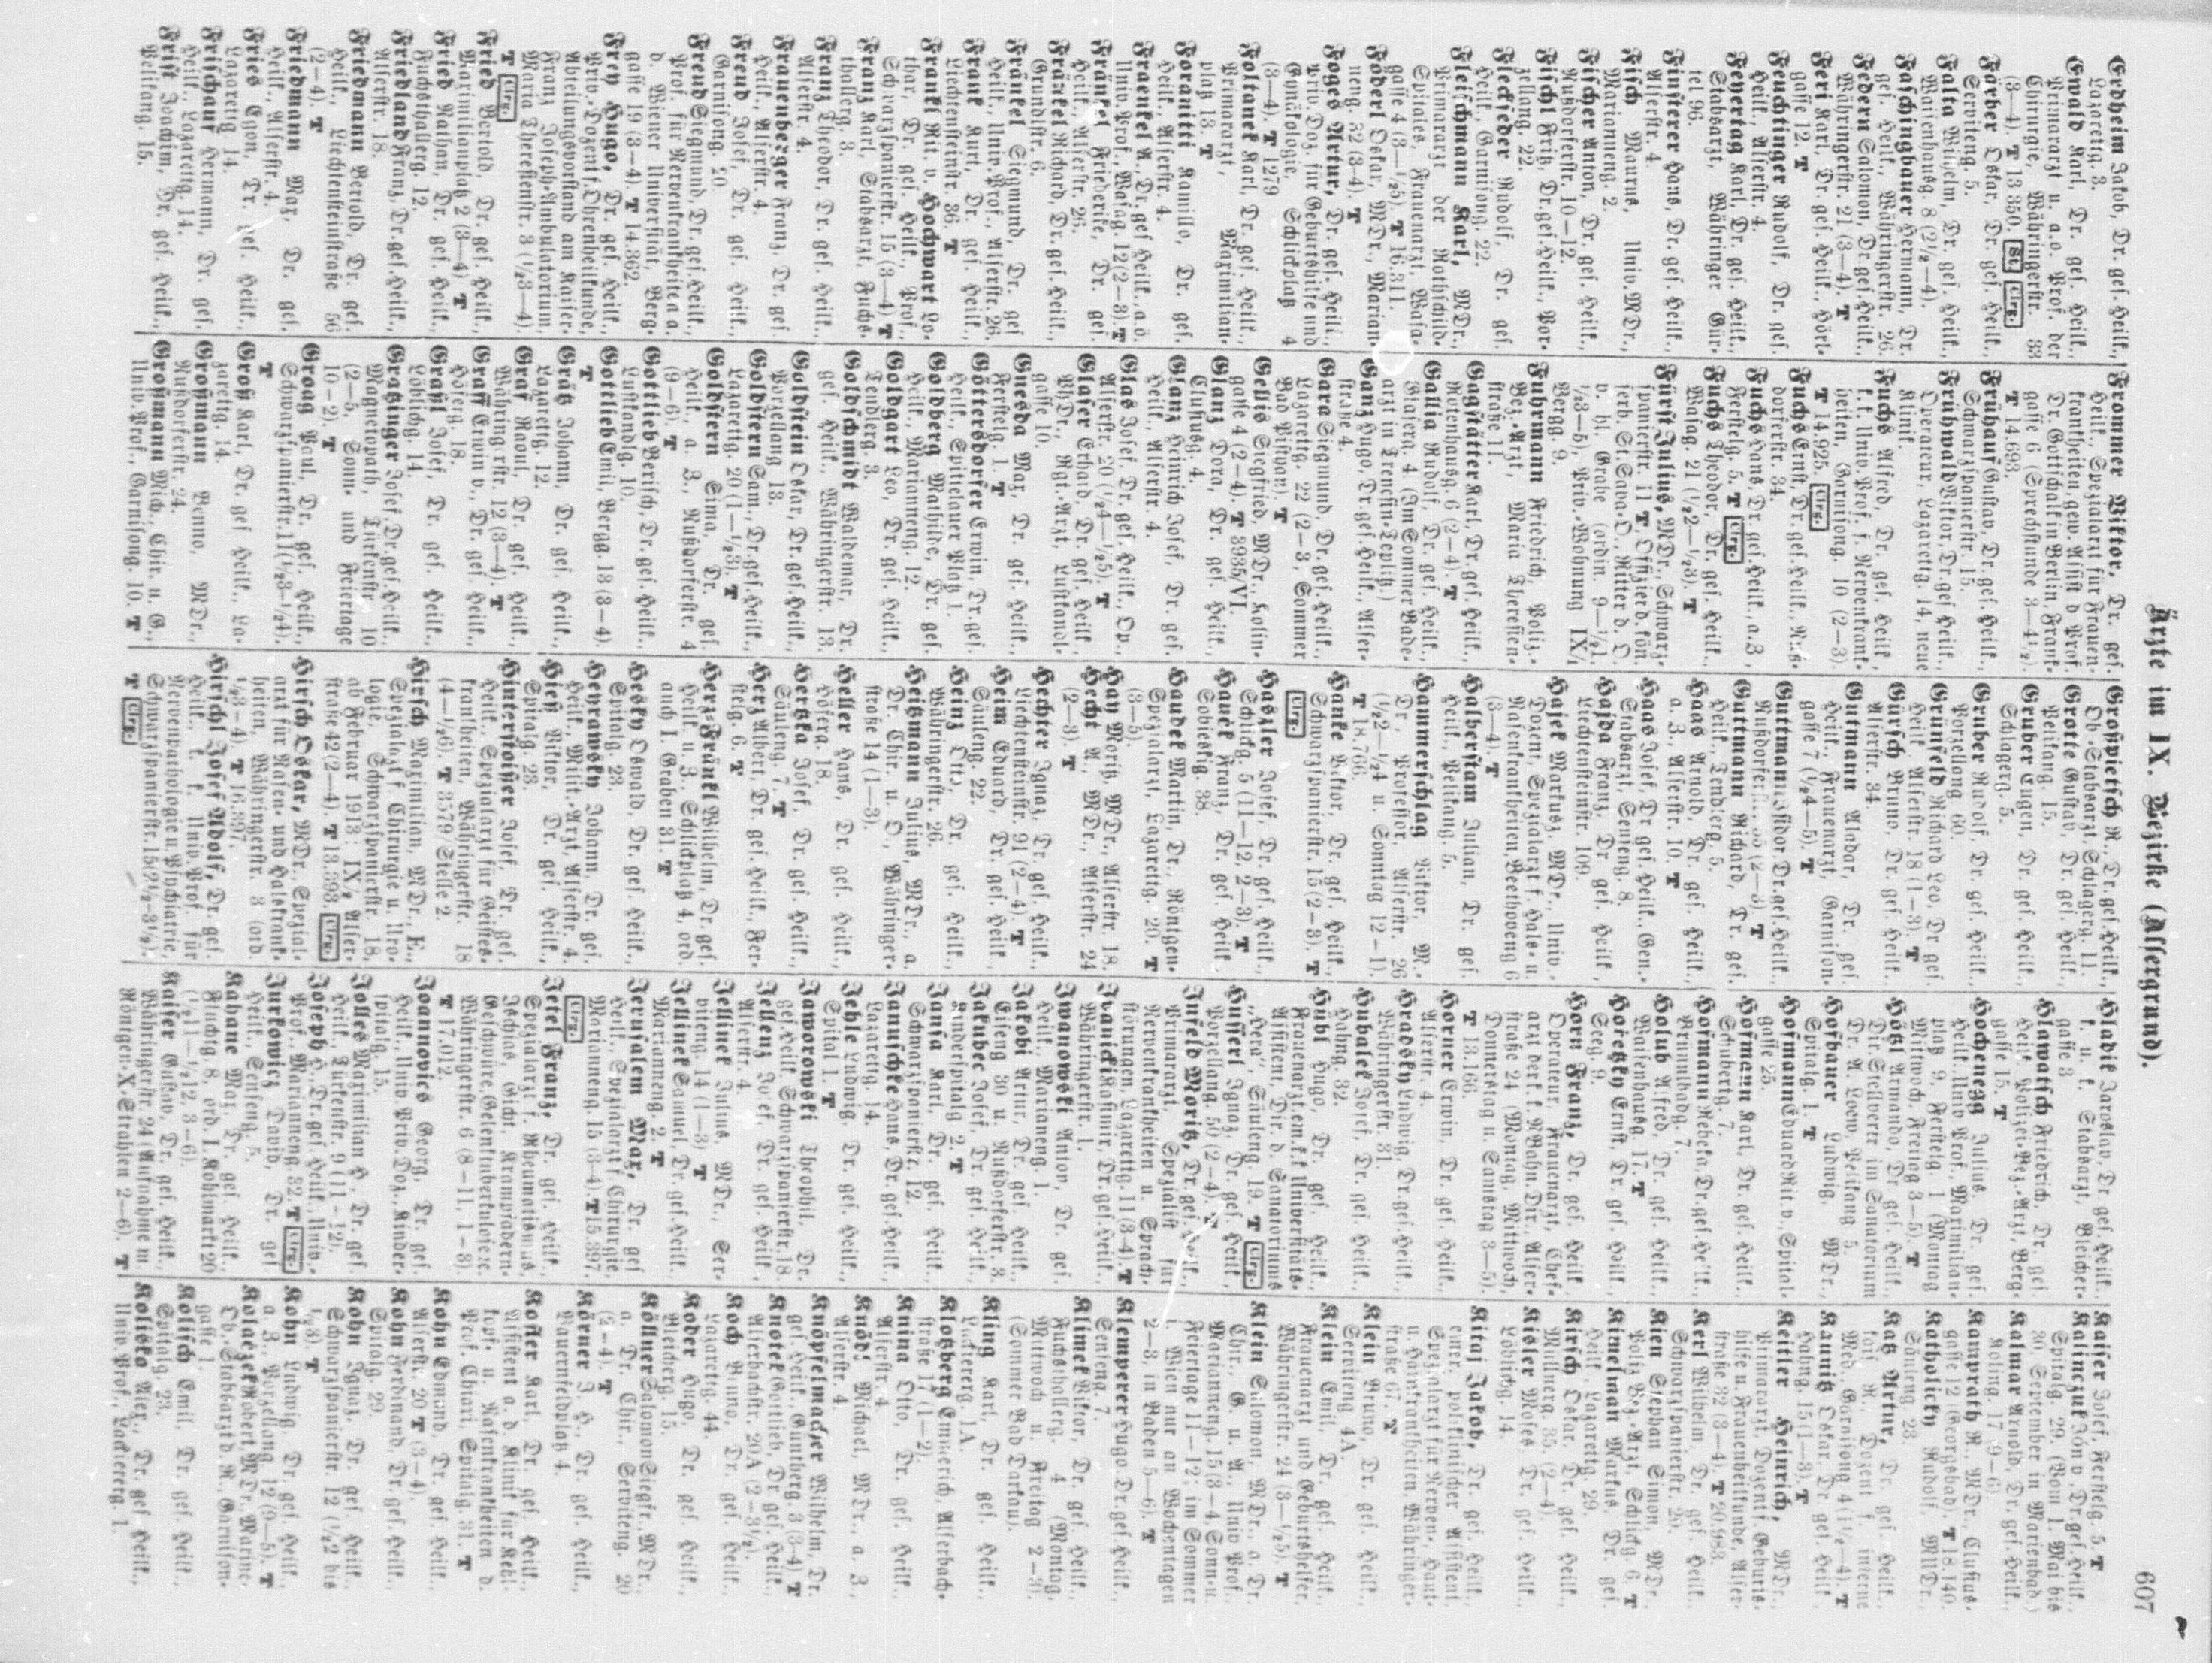 Ärzte im IX. Bezirke (Alsergrund).
607
Erdheim Jakob, Dr. ges. Heilk.,
Lazarettg. 3.
Ewald Karl, Dr. ges. Heilk.,
Primararzt u. a.o. Prof. der
Chirurgie, Währingerstr. 33
(3—4). T 13.350. Clrg.
Färber Oskar, Dr. ges. Heilk.,
Serviteng. 5.
Falta Wilhelm, Dr. ges. Heilk.,
Waisenhausg. 8 (2½—4).
Faschingbauer Hermann, Dr.
ges. Heilk., Währingerstr. 26.
Federn Salomon, Dr. ges. Heilk.,
Währingerstr. 21 (3—4). T
Feri Karl, Dr. ges. Heilk., Hörl-
gasse 12. T
Feuchtinger Rudolf, Dr. ges.
Heilk., Alserstr. 4.
Feyertag Karl, Dr. ges. Heilk.,
Stabsarzt, Währinger Gür-
tel 96.
Finsterer Hans, Dr. ges. Heilk.,
Alserstr. 4.
Fisch Maurus, Univ. MDr.,
Marianneng. 2.
Fischer Anton, Dr. ges. Heilk.,
Nußdorferstr. 10—12.
Fischl Fritz, Dr. ges. Heilk., Por-
zellang. 22.
Fleckseder Rudolf, Dr. ges.
Heilk., Garnisong. 22.
Fleischmann Karl, MDr.,
Primararzt der Rothschild-
Spitales, Frauenarzt, Wasa-
gasse 4 (3—½5). T 16.311.
Föderl Oskar, MDr., Marian-
neng. 32 (3—4). T
Foges Artur, Dr. ges. Heilk.,
Priv. Doz. für Geburtshilfe und
Gynäkologie, Schlickplatz 4
(3—4). T 1279
Foltanek Karl, Dr. ges. Heilk.,
Primararzt, Maximilian-
platz 13. T
Foramitti Kamillo, Dr. ges.
Heilk., Alserstr. 4.
Fraenkel A., Dr. ges. Heilk., a.ö.
Univ. Prof., Wasag. 12 (2—3). T
Fränkel Friederike, Dr. ges.
Heilk., Alserstr. 26.
Fränkel Richard, Dr. ges. Heilk.,
Grundlstr. 6.
Fränkel Segmund, Dr. ges
Heilk., Univ. Prof., Alserstr. 26.
Frank Kurt, Dr. ges. Heilk.,
Liechtensteinstr. 36 T
Frankl Rit. v. Hochwart Lo-
thar, Dr. ges. Heilk., Prof.,
Schwarzspanierstr. 15 (3—4) T
Franz Karl, Stabsarzt, Fuchs-
thallerg. 3.
Franz Theodor, Dr. ges. Heilk.,
Alserstr. 4.
Frauenberger Franz, Dr. ges.
Heilk., Alserstr. 4.
Freud Josef, Dr. ges. Heilk.,
Garnisong. 20
Freud Siegmund, Dr. ges. Heilk.,
Prof. für Nervenkrankheiten a.
d. Wiener Universität, Berg-
gasse 19 (3—4). T 14.362.
Frey Hugo, Dr. ges. Heilk.,
Priv.-Dozent f. Ohrenheilkunde,
Abteilungsvorstand am Kaiser-
Franz Joseph-Ambulatorium,
Maria Theresienstr. 3 (½3—4).
T Clrg.
Fried Bertold, Dr. ges. Heilk.,
Maximilianplatz 2 (3—4). T
Fried Nathan, Dr. ges. Heilk.,
Fuchsthalerg. 12.
Friedland Franz, Dr. ges. Heilk.,
Alserstr. 18.
Friedmann Bertold, Dr. ges.
Heilk., Liechtensteinstraße 56
(2—4). T
Friedmann Max, Dr. ges.
Heilk., Alserstr. 4.
Fries Egon, Dr. ges. Heilk.,
Lazarettg. 14.
Frischauf Hermann, Dr. ges.
Heilk., Lazarettg. 14.
Frist Joachim, Dr. ges. Heilk.,
Pelikang. 15.
Frommer Viktor, Dr. ges.
Heilk., Spezialarzt für Frauen-
krankheiten, gew. Assist. d Prof.
Dr. Gottschalk in Berlin, Frank-
gasse 6 (Sprechstunde 3—4½)
T 14.693.
Frühauf Gustav, Dr. ges. Heilk.,
Schwarzspanierstr. 15.
Frühwald Viktor, Dr. ges Heilk.,
Operateur, Lazarettg. 14, neue
Klinik
Fuchs Alfred, Dr. ges. Heilk
k.k. Univ. Prof. f. Nervenkrank-
heiten, Garnisong. 10 (2—3)
T 14.925. Clrg.
Fuchs Ernst, Dr. ges. Heilk., Nuß-
dorferstr. 34.
Fuchs Hans, Dr. ges. Heilk., a. 3.,
Ferstelg. 5. T Clrg.
Fuchs Theodor, Dr. ges. Heilk.,
Wasag. 21 (½2—½3). T
Fürst Julius, MDr., Schwarz-
spanierstr. 11 T Offizier d. kön
serb. St. Sava-O., Ritter d. O.
v. hl. Grabe (ordin. 9—½1.
½3—5), Priv.-Wohnung IX,
Bergg. 9.
Fuhrmann Friedrich, Poliz.-
Bez.-Arzt, Maria Theresien-
straße 11.
Gagstätter Karl, Dr. ges. Heilk.,
Rotenhausg. 6 (2—4). T
Gallia Rudolf, Dr. ges. Heilk.,
Glaserg. 4 (Im Sommer Bade-
arzt in Trencsin-Teplitz)
Ganz Hugo, Dr. ges. Heilk., Alser-
straße 4.
Gara Siegmund, Dr. ges. Heilk.,
Lazarettg. 22 (2—3, Sommer
Bad Pistyan). T
Gellis Siegfried, MDr., Kolin-
gasse 4 (2—4). T 3935/VI.
Glanz Dora, Dr. ges. Heilk.,
Clusiusg. 4.
Glanz Heinrich Josef, Dr. ges.
Heilk., Alserstr 4.
Glas Josef, Dr. ges. Heilk., Ov.,
Alserstr. 20 (½4—½5). T
Glaser Erhard, Dr. ges. Heilk
PhDr., Rgt.-Arzt, Lustkandl-
gasse 10.
Gnesda Max, Dr. ges. Heilk.,
Ferstelg. 1. T
Göttersdorfer Erwin, Dr. ges.
Heilk., Spittelauer Platz 1.
Goldberg Mathilde, Dr. ges.
Heilk., Marianneng. 12.
Goldgart Leo, Dr. ges. Heilk.,
Tendlerg. 3.
Goldschmidt Waldemar, Dr.
ges. Heilk., Währingerstr. 13.
Goldstein Oskar, Dr. ges. Heilk.,
Porzellang. 13.
Goldstern Sam., Dr. ges. Heilk.,
Lazarettg. 20 (1—½3). T
Goldstern Sima, Dr. ges.
Heilk., a. 3., Nußdorferstr. 4
(9—6). T
Gottlieb Berisch, Dr. ges. Heilk.,
Lustkandlg. 10.
Gottlieb Emil, Bergg. 13 (3—4)
T
Grätz Johann, Dr. ges. Heilk.,
Lazarettg. 12.
Graf Raoul, Dr. ges. Heilk.,
Währing.rstr. 12 (3—4). T
Graff Erwin v., Dr. ges. Heilk.,
Höferg. 18.
Graßl Josef, Dr. ges. Heilk.,
Löblichg. 14.
Gratzinger Josef, Dr. ges. Heilk.,
Magnetopath, Türkenstr. 10
(2—5, Sonn- und Feiertage
10—2). T
Groag Paul, Dr. ges. Heilk.,
Schwarzspanierstr. 11 (½3—¼4).
T
Groß Karl, Dr. ges Heilk., La-
zarettg. 14.
Großmann Benno, MDr.,
Nußdorferstr. 24.
Großmann Mich., Chir. u. G.,
Univ. Prof., Garnisong. 10. T
Großpietsch R., Dr. ges. Heilk.,
Ob.-Stabsarzt, Schlagerg. 11.
Grotte Gustav, Dr. ges. Heilk.,
Pelikang. 15.
Gruber Eugen, Dr. ges. Heilk.,
Schlagerg. 5.
Gruber Rudolf, Dr. ges. Heilk.,
Porzellang. 60.
Grünfeld Richard Leo, Dr ges.
Heilk., Alserstr. 18 (1—3). T
Gürsch Bruno, Dr. ges. Heilk.,
Alserstr. 34.
Gutmann Aladar, Dr. ges.
Heilk., Frauenarzt, Garnison-
gasse 7 (½4—5). T
Guttmann Isidor, Dr. ges. Heilk.,
Nußdorferstr. 35 (2—3). T
Guttmann Richard, Dr. ges.
Heilk., Tendlerg. 5.
Haas Arnold, Dr. ges. Heilk.,
a. 3., Alserstr. 10. T
Haas Josef, Dr. ges. Heilk., Gen.-
Stabsarzt, Senseng. 8.
Hajda Franz, Dr. ges. Heilk.,
Liechtensteinstr. 109.
Hajek Markus, MDr., Univ.-
Dozent, Spezialarzt f. Hals- u.
Nasenkrankheiten, Beethoveng 6
(3—4). T
Halberstam Julian, Dr. ges.
Heilk., Pelikang. 5.
Hammerschlag Viktor, M.-
Dr., Professor, Alserstr. 26
(½2—¼4 u. Sonntag 12—1).
T 18.766.
Hanke Viktor, Dr. ges. Heilk.,
Schwarzspanierstr. 15 (2—3). T
Clrg.
Haszler Josef, Dr. ges. Heilk.,
Schlickg. 5 (11—12, 2—3). T
Hauck Franz, Dr. ges. Heilk.,
Sobieskig. 38.
Haudek Martin, Dr., Röntgen-
Spezialarzt, Lazarettg. 20. T
(3—5).
Hay Moritz, MDr., Alserstr. 18.
Hecht A., MDr., Alserstr. 24
(2—3). T
Hechter Ignaz, Dr. ges. Heilk.,
Liechtensteinstr. 91 (2—4). T
Heim Eduard, Dr. ges. Heilk.,
Säuleng. 22.
Heinz Otto, Dr. ges. Heilk.,
Währingerstr. 26.
Heitzmann Julius, MDr., a.
Dr. Chir. u. O., Währinger-
straße 14 (1—3).
Heller Hans, Dr. ges. Heilk.,
Höferg. 18.
Hertzka Josef, Dr. ges. Heilk.,
Säuleng. 7. T
Herz Albert, Dr. ges. Heilk., Fer-
stelg. 6. T
Herz-Fränkl Wilhelm, Dr. ges.
Heilk. u. 3., Schlickplatz 4, ord
auch I. Graben 31. T
Hesky Oswald, Dr. ges. Heilk.,
Spitalg. 23.
Heyrawsky Johann, Dr. ges.
Heilk., Milit.-Arzt, Alserstr. 4.
Hieß Viktor, Dr. ges. Heilk.,
Spitalg. 23.
Hinterstoißer Josef, Dr. ges.
Heilk., Spezialarzt für Geistes-
krankheiten, Währingerstr. 18
(4—½6). T 3579 Stelle 2.
Hirsch Maximilian, MDr., E.,
Spezialarzt f. Chirurgie u. Uro-
logie, Schwarzspanierstr. 18,
ab Februar 1913: IX/2 Alser-
straße 42 (2—4). T 13.393. Clrg.
Hirsch Oskar, MDr., Spezial-
arzt für Nasen- und Halskrank-
heiten, Währingerstr. 3 (ord.
½3—4) T 16.397.
Hirschl Josef Adolf, Dr. ges.
Heilk., k. k. Univ. Prof. für
Nervenpathologie u. Psychiatrie,
Schwarzspanierstr. 15 (2½—3½).
T Clrg.
Hladik Jaroslav, Dr ges. Heilk.,
k. u. k. Stabsarzt, Bleicher-
gasse 3
Hlawatsch Friedrich, Dr. ges
Heilk., Polizei-Bez.-Arzt, Berg-
gasse 15. T
Hochenegg Julius, Dr. ges.
Heilk., Univ. Prof., Maximilian-
platz 9, Ferstelg. 1 (Montag
Mittwoch, Freitag 3—5). T
Hößl Armando, Dr. ges. Heilk.,
Dir. Stellvertr. im Sanatorium
Dr. A. Loew, Pelikang 5.
Hofbauer Ludwig, MDr.,
Spitalg. 1. T
Hofmann Eduard Rit. v., Spital-
gasse 25.
Hofmann Karl, Dr. ges. Heilk.,
Schubertg. 7.
Hofmann Rebeka, Dr. ges. Heilk.,
Brünnlbadg. 7.
Holub Alfred, Dr. ges. Heilk.,
Waisenhausg. 17. T
Horetzky Ernst, Dr. ges. Heilk.,
Seeg. 9.
Horn Franz, Dr. ges. Heilk
Operateur, Frauenarzt, Chef-
arzt der k. k. NBahn-Dir., Alser-
straße 24 (Montag, Mittwoch,
Donnerstag u. Samstag 3—5).
T 13.166.
Horner Erwin, Dr. ges. Heilk.,
Alserstr. 4.
Hradsky Ludwig, Dr. ges. Heilk.,
Währingerstr. 31.
Hubalek Josef, Dr. ges. Heilk.,
Hahng. 32.
Hübl Hugo, Dr. ges. Heilk.,
Frauenarzt, em. k.k. Universitäts-
Assistent, Dir. d. Sanatoriums
„Hera“, Säuleng. 19. T Clrg.
Hussert Ignaz, Dr. ges. Heilk.,
Porzellang. 50 (2—4). T
Infeld Moritz, Dr. ges. Heilk.,
Primararzt, Spezialist für
Nervenkrankheiten u. Sprach-
störungen, Lazarettg. 11 (3-4). T
Ivanicki Kasimir, Dr. ges. Heilk.,
Währingerstr. 1.
Iwanowski Anton, Dr. ges.
Heilk., Marianeng 1.
Jakobi Artur, Dr. ges. Heilk.,
Eiseng 30 u. Nußdorferstr. 3.
Jakubec Josef, Dr. ges. Heilk.,
Kinderspitalg 2. T
Jansa Karl, Dr. ges. Heilk.,
Schwarzspanierstr. 12.
Januschke Hans, Dr. ges. Heilk.,
Lazarettg. 14.
Jehle Ludwig, Dr. ges. Heilk.,
Spitalg 1. T
Jaworowski Theophil, Dr.
ges. Heilk., Schwarzspanierstr. 18
Jellenz Josef, Dr. ges. Heilk.,
Alserstr. 4.
Jellinek Julius, MDr., Ser-
viteng. 14 (1—3) T
Jellinek Samuel, Dr. ges. Heilk.,
Marianneng. 2. T
Jerusalem Max, Dr. ges
Heilk., Spezialarzt f. Chirurgie,
Marianneng. 15 (3-4). T 15.397.
Clrg.
Jetel Franz, Dr. ges. Heilk.,
Spezialarzt f. Rheumatismus,
Ischias, Gicht, Krampfadern-
Geschwüre, Gelenkstuberkulose ꝛc.
Währingerstr. 6 (8—11, 1—3)
T 17.012.
Joannovics Georg, Dr. ges.
Heilk., Univ. Priv. Doz., Kinder-
spitalg. 15.
Jolles Maximilian H., Dr. ges
Heilk., Türkenstr. 9 (11—12).
Joseph H., Dr. ges. Heilk., Univ.-
Prof., Marianneng. 32. T Clrg.
Jurkowicz David, Dr. ges
Heilk., Senseng. 5.
Kahane Max, Dr. ges. Heilk.,
Fluchtg. 8, ord. I. Kohlmarkt 20
(½11—½12, 3—6).
Kaiser Gustav, Dr. ges. Heilk.,
Währingerstr. 24 Aufnahme m.
Röntgen-X-Strahlen 2—6). T
Kaiser Josef, Ferstelg. 5. T
Kalinczuk Jon v., Dr. ges. Heilk.,
Spitalg. 29. (Vom 1. Mai bis
30. September in Marienbad.)
Kalmar Arnold, Dr. ges. Heilk.,
Koling. 17 (9—6).
Kamprath R., MDr., Clusius-
gasse 12 (Georgsbad). T 18.140.
Katholicky Rudolf, MUDr.,
Säuleng. 23.
Katz Artur, Dr. ges. Heilk.,
kais. R., Dozent f. interne
Med., Garnisong. 4 (1½—4). T
Kaunitz Oskar, Dr. ges. Heilk
Hahng. 15 (1—3). T
Keitler Heinrich, MDr.,
Primararzt, Dozent f. Geburts-
hilfe u. Frauenheilkunde, Alser-
straße 32 (3—4). T 20.983.
Kerl Wilhelm, Dr. ges. Heilk.,
Schwarzspanierstr. 20.
Kien Stephan Simon, MDr.,
Poliz. Bez.-Arzt, Schlickg. 6. T
Kimelman Markus, Dr. ges.
Heilk., Lazarettg. 29.
Kirsch Oskar, Dr. ges. Heilk.,
Müllnerg. 35 (2—4).
Kisler Moses, Dr. ges. Heilk.,
Löblichg. 14.
Kitaj Jakob, Dr. ges. Heilk.,
emer. poliklinischer Assistent,
Spezialarzt für Nerven-, Haut-
u. Harnkrankheiten, Währinger-
straße 67. T
Klein Bruno, Dr. ges. Heilk.,
Serviteng. 4A
Klein Emil, Dr. ges. Heilk.,
Frauenarzt und Geburtshelfer,
Währingerstr. 24 (3—½5). T
Klein Salomon, MDr., a. Dr.
Chir., G. u. A., Univ. Prof.,
Marianneng. 15 (3—4, Sonn- u.
Feiertage 11—12; im Sommer
i. Wien nur an Wochentagen
2—3, in Baden 5—6). T
Klemperer Hugo, Dr. ges. Heilk.,
Senseng. 7.
Klimek Viktor, Dr. ges. Heilk.,
Fuchsthallerg. 4 (Montag,
Mittwoch u. Freitag 2—3)
(Sommer Bad Darkau).
Kling Karl, Dr. ges. Heilk.,
Lackiererg. 1A.
Kloßberg Emmerich, Alserbach-
straße 11 (1—2).
Knina Otto, Dr. ges. Heilk.,
Alserstr. 4
Knödl Michael, MDr., a. 3.,
Alserstr. 4.
Knöpfelmacher Wilhelm, Dr.
ges. Heilk., Güntherg. 3 (3—4) T
Knotek Gottlieb, Dr ges. Heilk.,
Alserbachstr. 20A (2—3½).
Koch Bruno, Dr. ges. Heilk.,
Lazarettg. 44.
Koder Hugo, Dr. ges. Heilk.,
Bleicherg. 15.
Köllner Salomon Siegfr., MDr.,
a. Dr. Chir., Serviteng. 20
(2—4). T
Körner J. H., Dr. ges. Heilk.,
Bauernfeldplatz 4.
Kofler Karl, Dr. ges. Heilk.,
Assistent a. d. Klinik für Kehl-
kopf- u. Nasenkrankheiten d.
Prof. Chiari, Spitalg. 31. T
Kohn Edmund, Dr. ges. Heilk.,
Alserstr. 20 T (3—4).
Kohn Ferdinand, Dr. ges. Heilk.,
Spitalg. 29.
Kohn Ignaz, Dr. ges. Heilk.,
Schwarzspanierstr. 12 (½2 bis
½3). T
Kohn Ludwig, Dr. ges. Heilk.,
a. 3., Porzellang. 12 (9—5). T
Kolaczek Robert, MDr., Marine-
Ob. Stabsarzt d. R., Garnison-
gasse 1.
Kolisch Emil, Dr. ges. Heilk.,
Spitalg. 23.
Kolisko Alex., Dr. ges. Heilk.,
Univ. Prof., Lackiererg. 1.